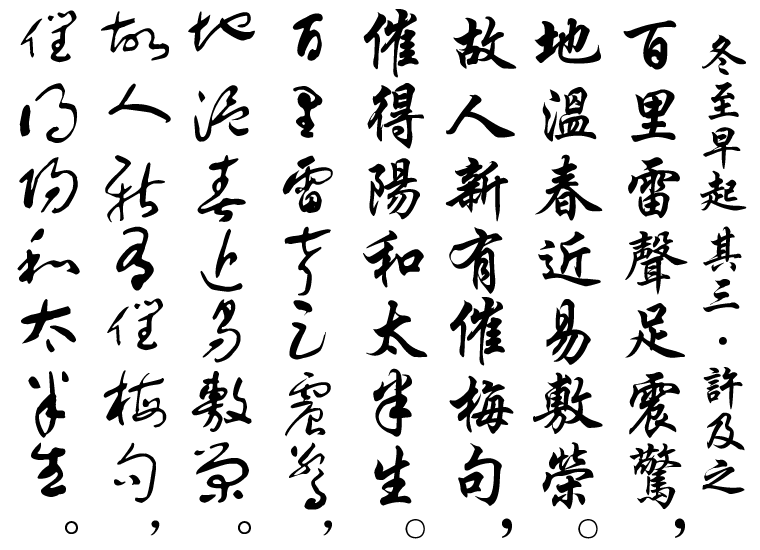 冬至早起 其三・許及之
百里雷聲足震驚，
地溫春近易敷榮。
故人新有催梅句，
催得陽和太半生。
百里雷聲足震驚，
地溫春近易敷榮。
故人新有催梅句，
催得陽和太半生。